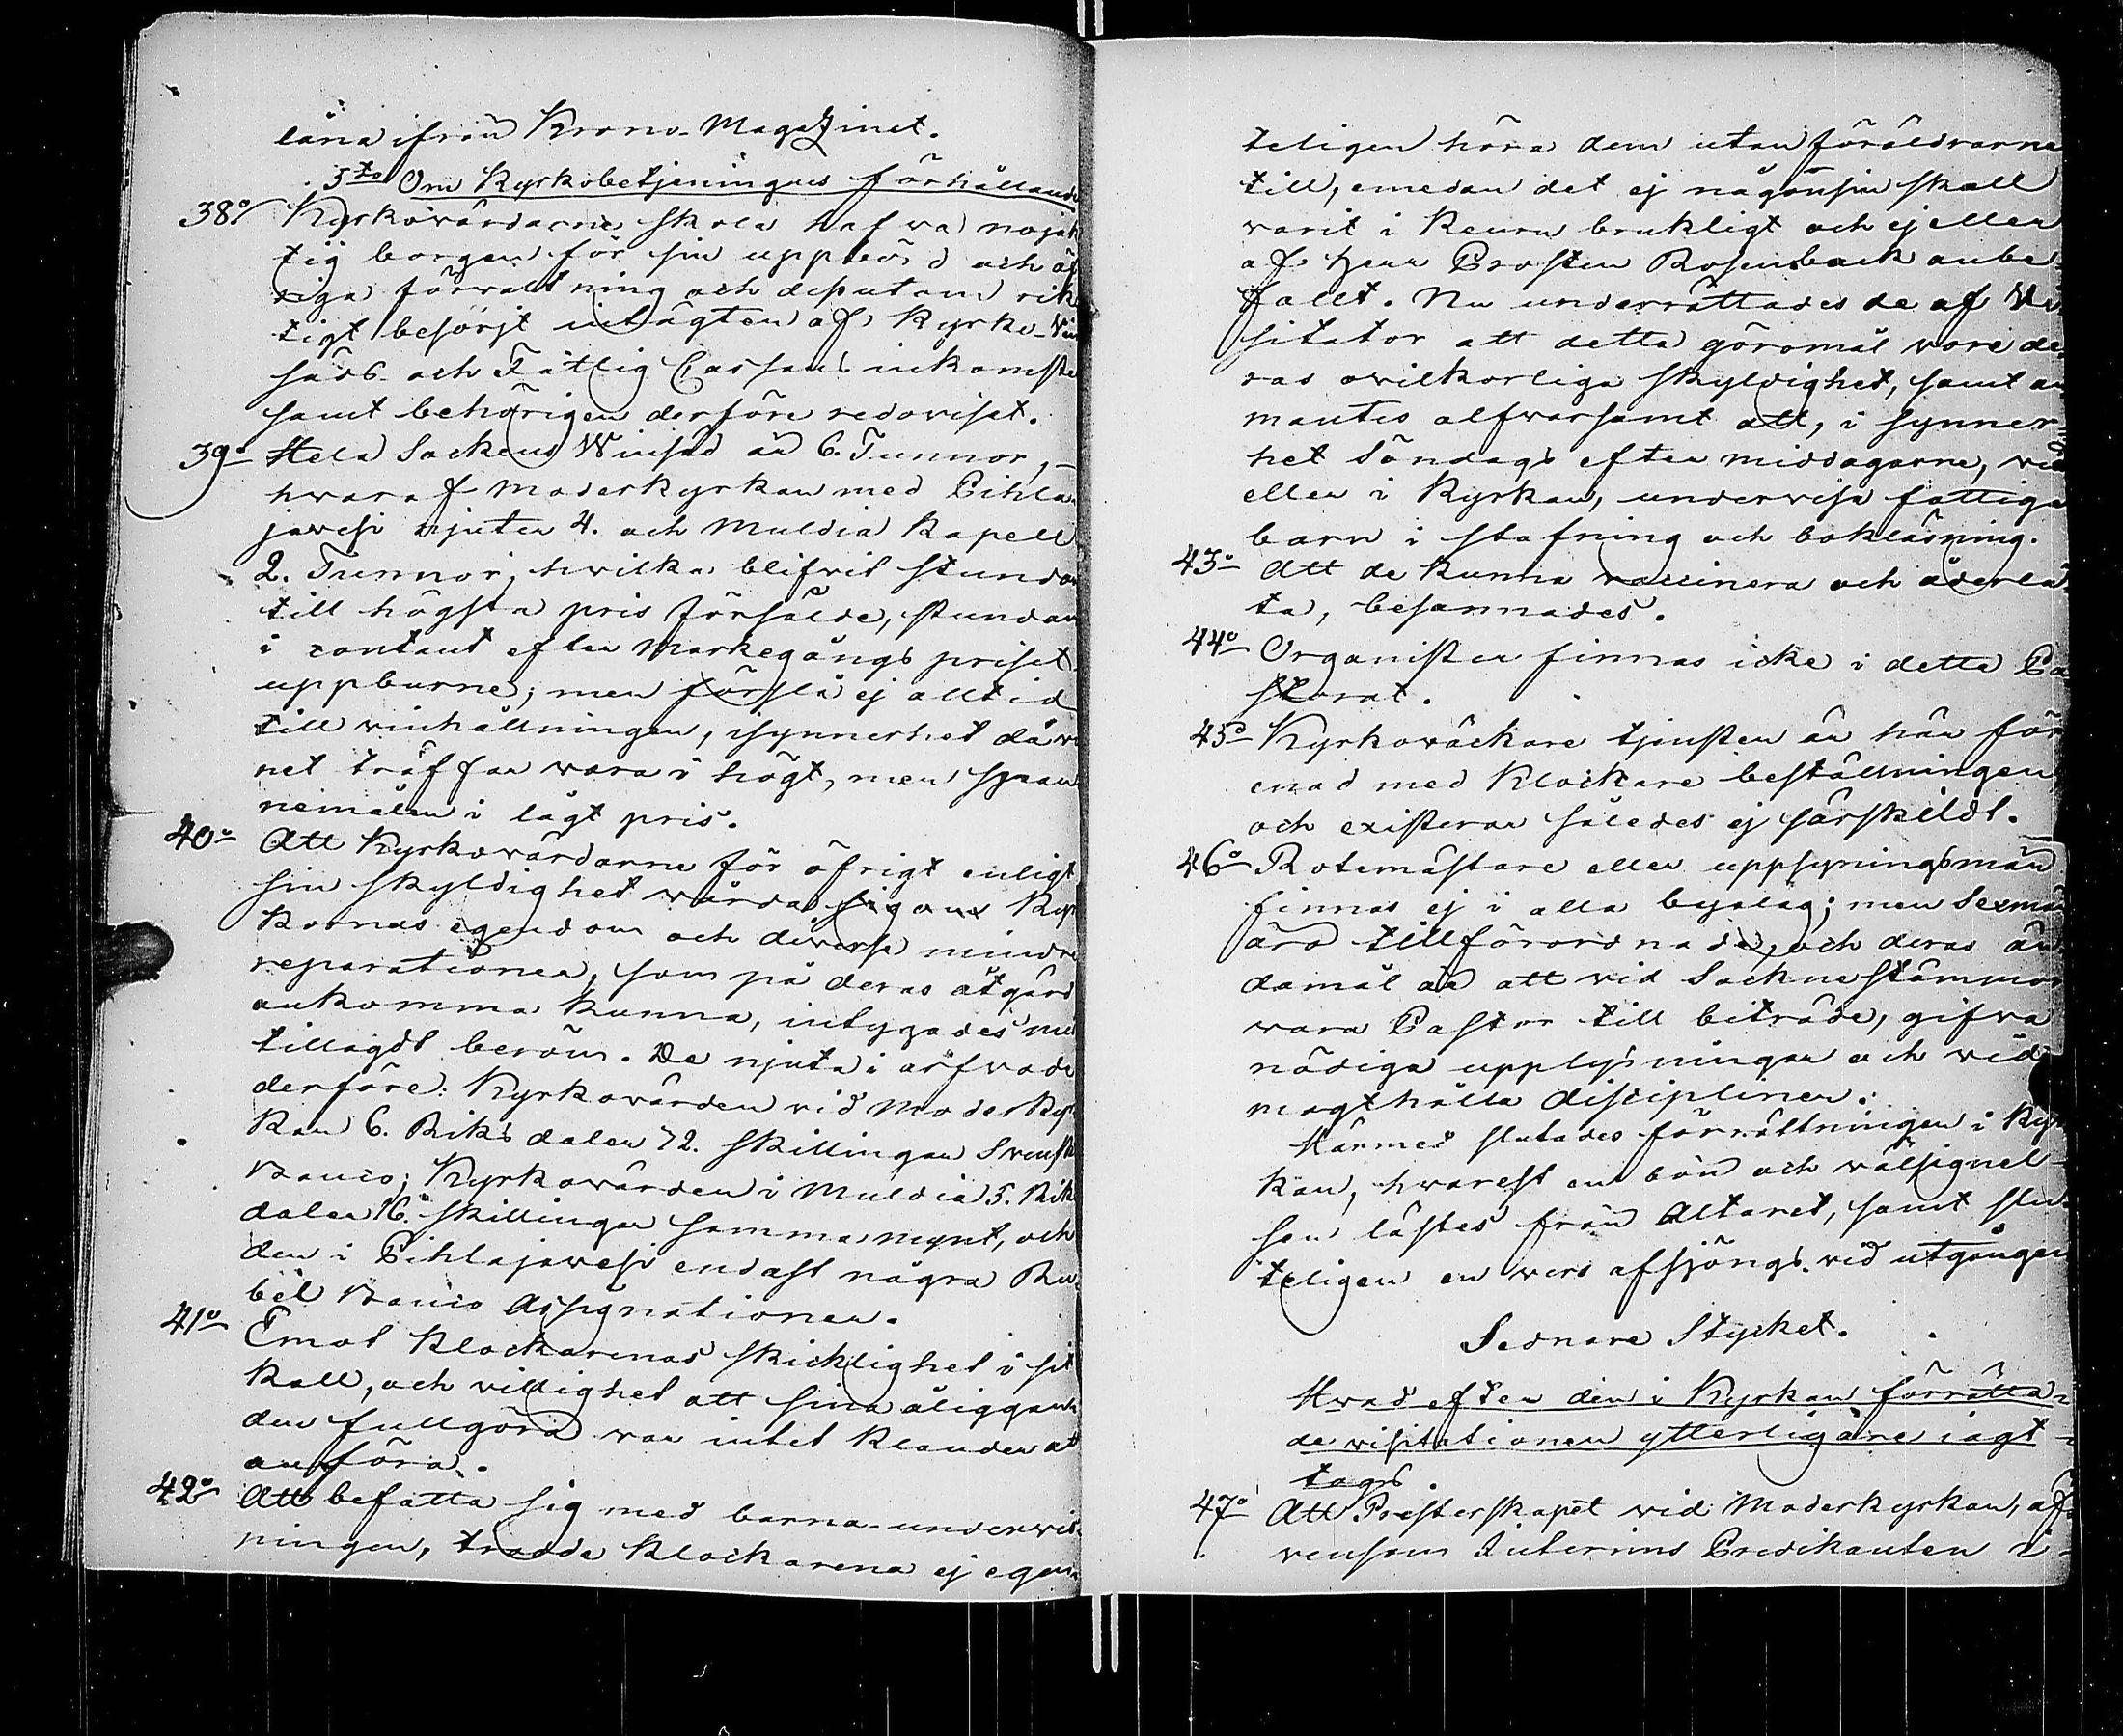 låna ifrån Krono-Magazinet.
5to Om Kyrkobetjeningens förhållande
38o Kyrkovärdarne skola hafva nöjak
tig borgen för sin uppbörd och öf
riga förvaltning och dessutom rik
tigt besörjt intägten af Kyrko- Vin
säds- och Fattig Cassans inkomster
samt behörigen derföre redoviset.
39o Hela Sockens Winsäd är 6. Tunnor, -
hvaraf Moderkyrkan med Pihla-
javesi njuter 4. och Muldia Kapell
2. Tunnor, hvilka blifvit stundom
till högsta pris försålde, stundom
i contant efter Markegångs priset
uppburne; men förslå ej alltid
till vinhållningen, isynnerhet då vi
net träffar vara i högt, men span
nemålen i lågt pris.
40o Att Kyrkovärdarne för öfrigt enligt
sin skyldighet vårda sig om Kyr
kornas egendom och diverse mindre
reparationer, som på deras åtgärd
ankomma kunna, intygades med
tillagdt beröm. De njuta i arfvode
derföre: Kyrkovärden vid Moderkyr
kan 6. Riksdaler 72. skillingar Svensk
Banco; Kyrkovärden i Muldia 5. Riks
daler 16. skillingar samma mynt, och
den i Pihlajavesi endast några Ru-
bel Banco Assignationer.
41o Emot Klockarenas skicklighet i sit
kall, och villighet att sina åliggan
den fullgöra var intet klander at
anföra.
42o Att befatta sig med barna-undervis
ningen, trodde Klockarena ej egen-
teligen höra dem utan föräldrarne
till, emedan det ej någonsin skall
varit i Keuru brukligt och ej eller
af Herr Prosten Rosenback anbe-
fallt. Nu underrättades de af Vi-
sitator att detta göromål vore de-
ras ovilkorliga skyldighet, samt an
mantes alfvarsamt att, i synner-
het Söndags eftermiddagarne, vid
eller i Kyrkan, undervisa fattiga
barn i stafning och bokläsning.
43o Att de kunna vaccinera och åderlå
ta, besannades.
44o Organister finnas icke i detta Pa
storat.
45o Kyrkoväckare tjensten är här för
enad med Klockare beställningen
och existerar således ej särskildt.
46o Rotemästare eller uppsyningsmän
finnas ej i alla byalag; men Sexmän
äro tillförordnade, och deras än
damål är att vid Sockne stämmor
vara Pastor till biträde, gifva
nödiga upplysningar och vid
magthålla disciplinen.
Härmed slutades förrättningen i Kyr
kan, hvarest en bön och välsignel-
sen lästes från Altaret, samt slu-
teligen en vers afsjöngs vid utgången
Sednare Stycket.
Hvad efter den i Kyrkan förrätta-
de visitationen ytterligare iagt-
tags.
47o Att Presterskapet vid Moderkyrkan, äf
vensom Interims Predikanten i